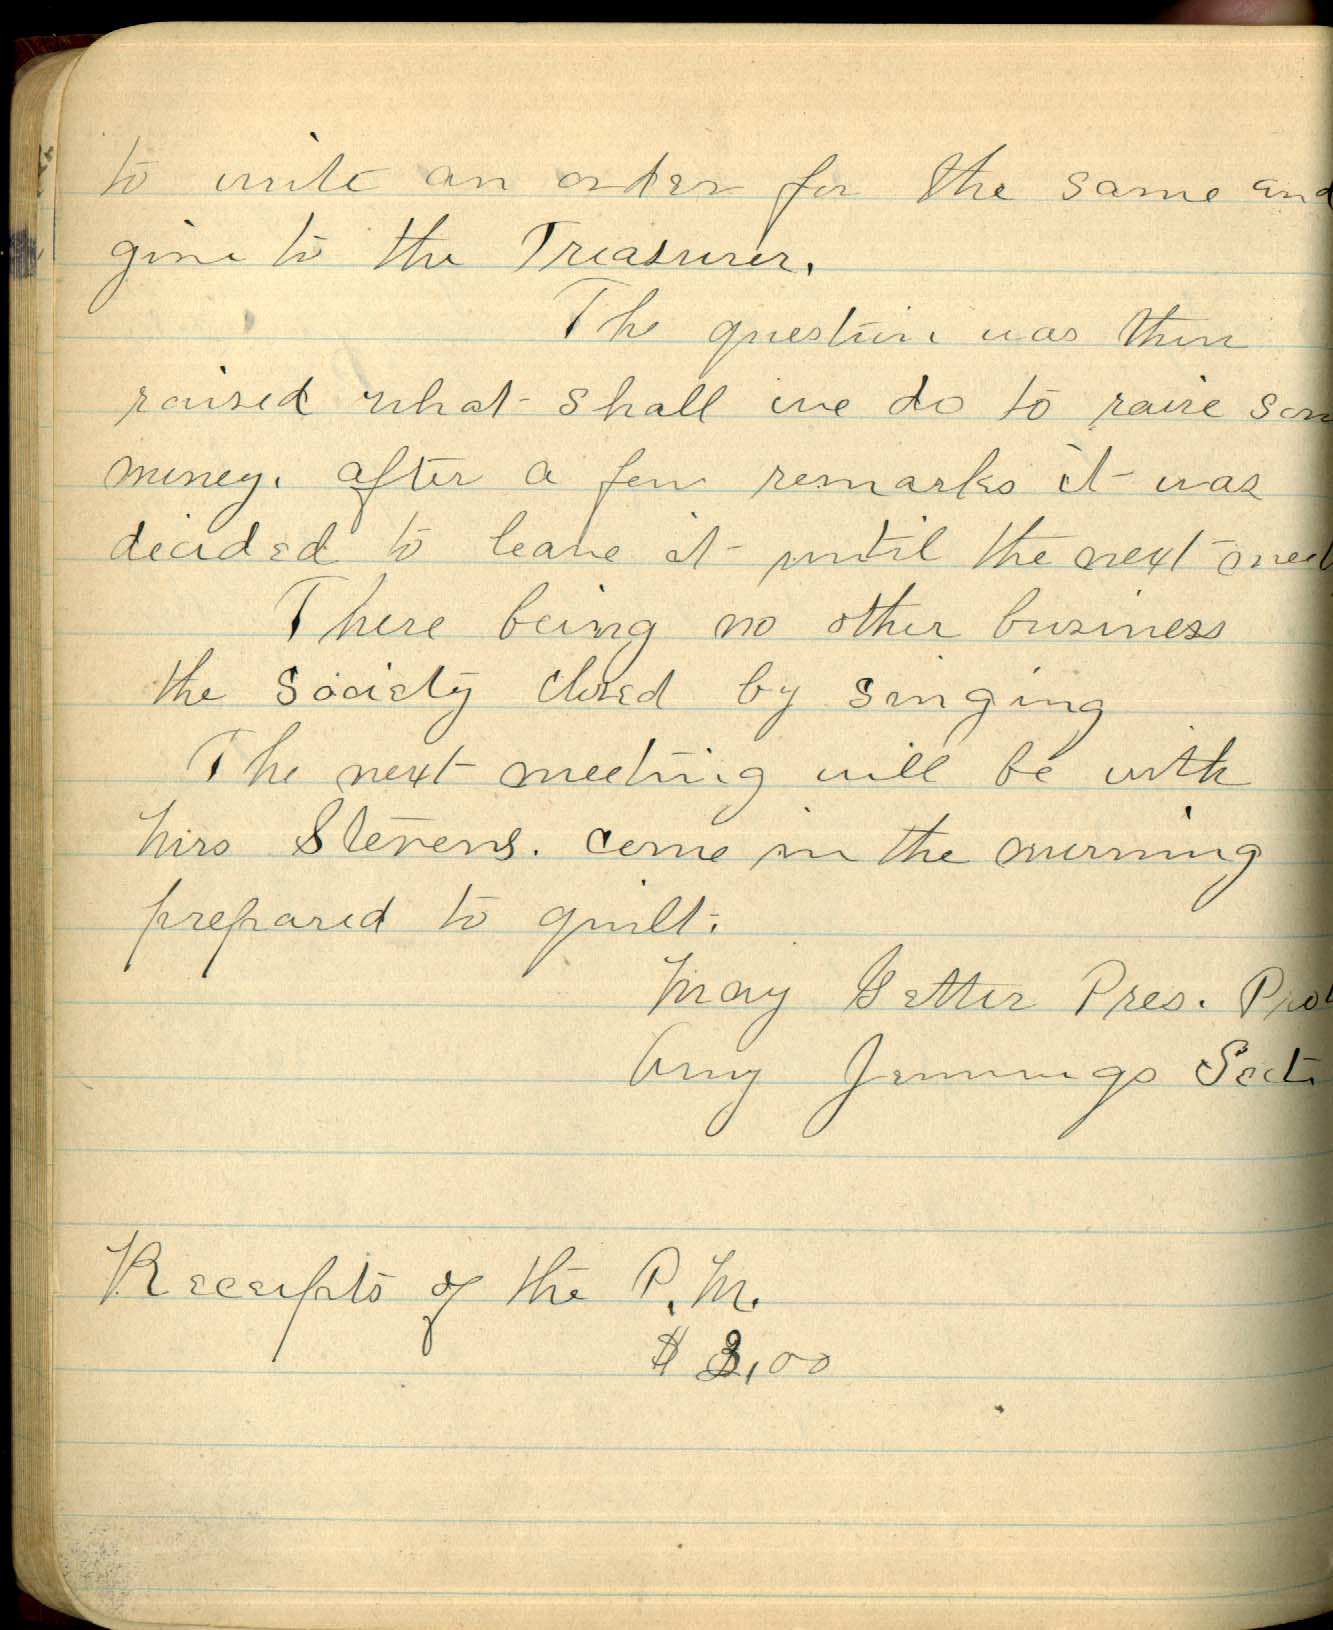 to write an order for the same and
give to the Treasurer.
The question was then
raised what shall we do to raise som
money. after a few remarks it was
decided to leave it until the next meet
There being no other business
the Society closed by singing
The next meeting will be with
Mrs Stevens. come in the morning
prepared to quilt.
May Getter Pres. Prot
Amy Jennings Sect.
Receipts of the P.M.
$ 3,00